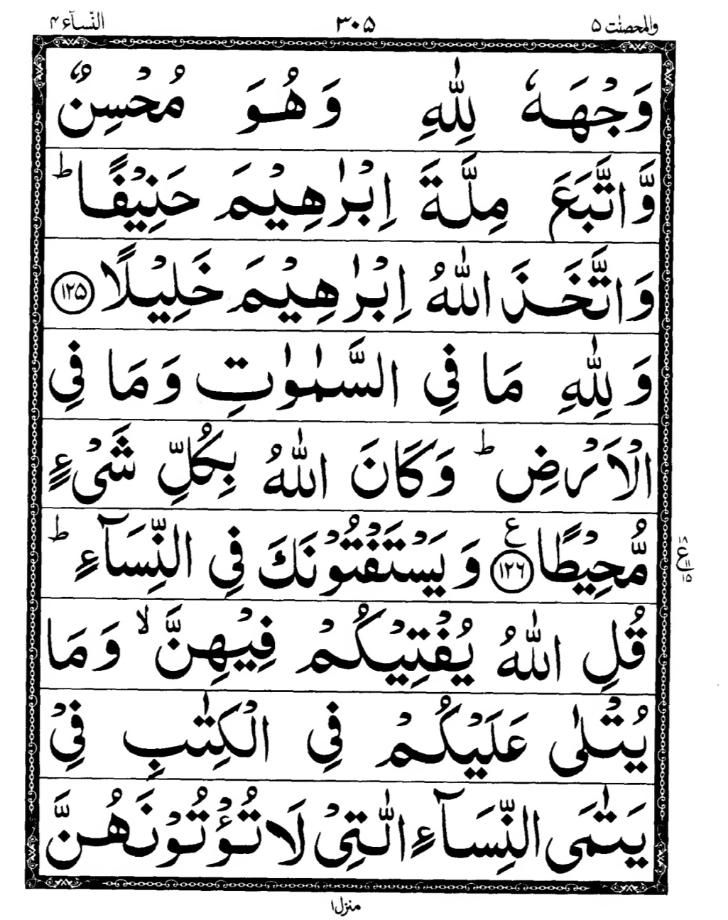 والمحصنٰت ۵ ۳۰۵ النّسآء ۴
وَجْهَهٗ لِلّٰهِ وَهُوَ مُحْسِنٌ
وَّاتَّبَعَ مِلَّةَ اِبْرٰهِيْمَ حَنِيْفًا ؕ
وَاتَّخَذَ اللّٰهُ اِبْرٰهِيْمَ خَلِيْلًا ﴿۱۲۵﴾
وَلِلّٰهِ مَا فِي السَّمٰوٰتِ وَمَا فِي
الْاَرْضِ ؕ وَكَانَ اللّٰهُ بِكُلِّ شَيْءٍ
مُّحِيْطًا ﴿۱۲۶﴾ ع وَيَسْتَفْتُوْنَكَ فِي النِّسَآءِ ؕ
۱۸
ع ۱۱
۱۵
قُلِ اللّٰهُ يُفْتِيْكُمْ فِيْهِنَّ ۙ وَمَا
يُتْلٰى عَلَيْكُمْ فِي الْكِتٰبِ فِيْ
يَتٰمَى النِّسَآءِ الّٰتِيْ لَا تُؤْتُوْنَهُنَّ
منزل ۱